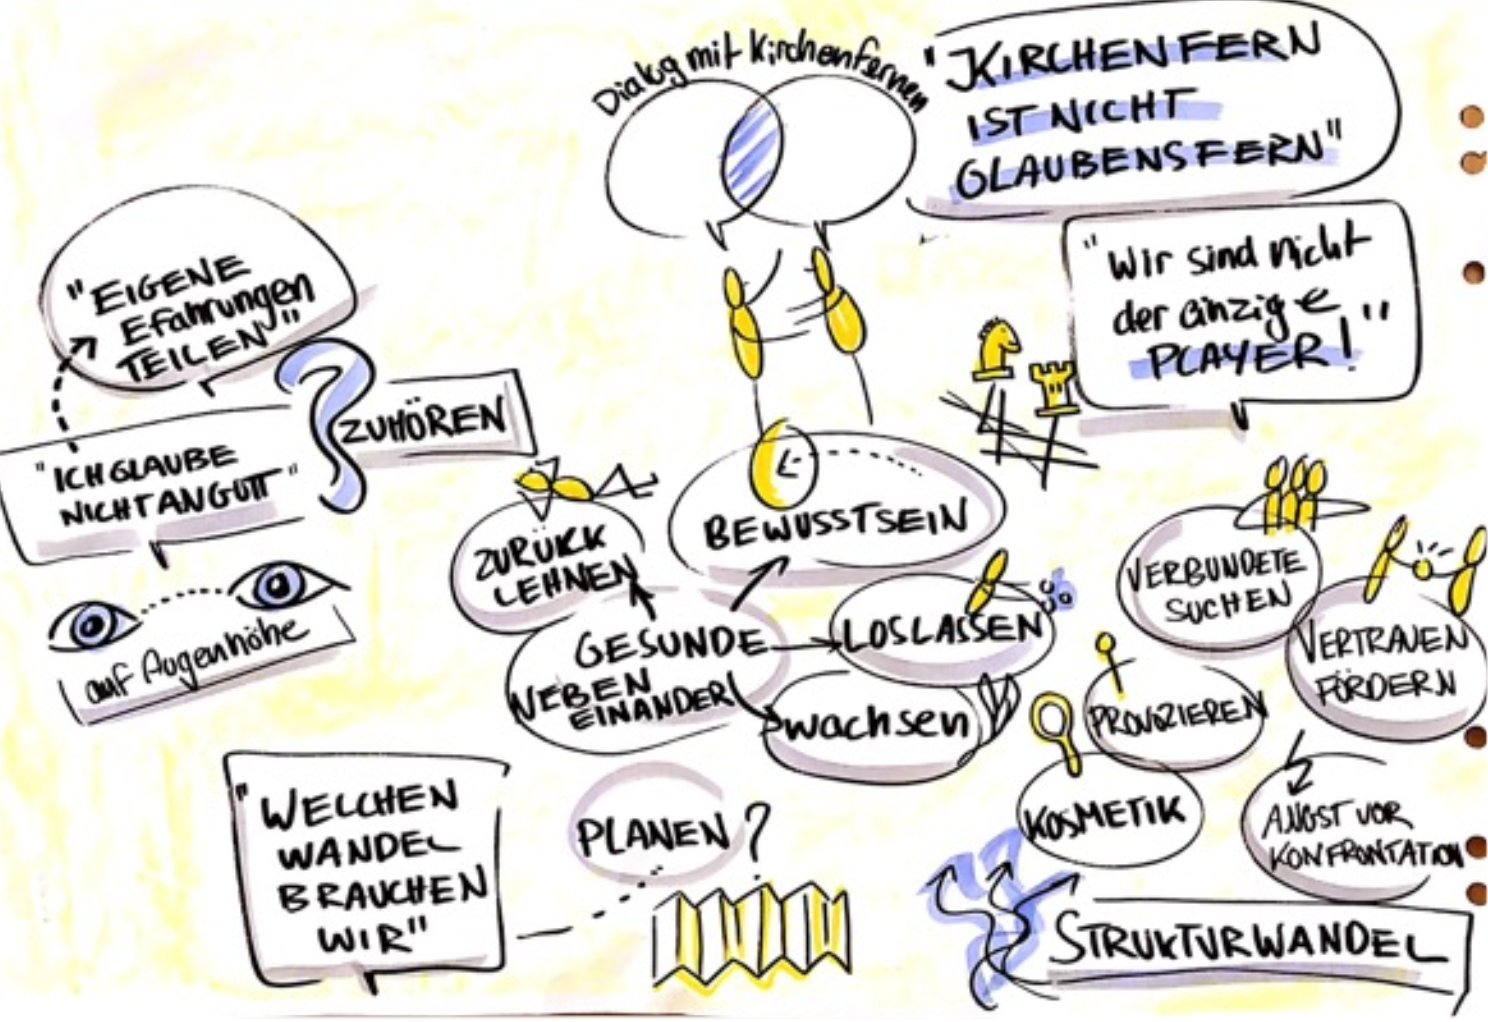 Dialog mit Kirchenfernen
"KIRCHENFERN
IST NICHT
GLAUBENSFERN"
"Wir sind nicht
der einzige
PLAYER!"
"EIGENE
Efahrungen
TEILEN"
ZUHÖREN
"ICH GLAUBE
NICHT AN GOTT"
auf Augenhöhe
ZURÜCK
LEHNEN
BEWUSSTSEIN
GESUNDE
NEBEN
EINANDER
LOSLASSEN
wachsen
VERBÜNDETE
SUCHEN
VERTRAUEN
FÖRDERN
PROVOZIEREN
KOSMETIK
ANGST VOR
KONFRONTATION
STRUKTURWANDEL
"WELCHEN
WANDEL
BRAUCHEN
WIR"
PLANEN?